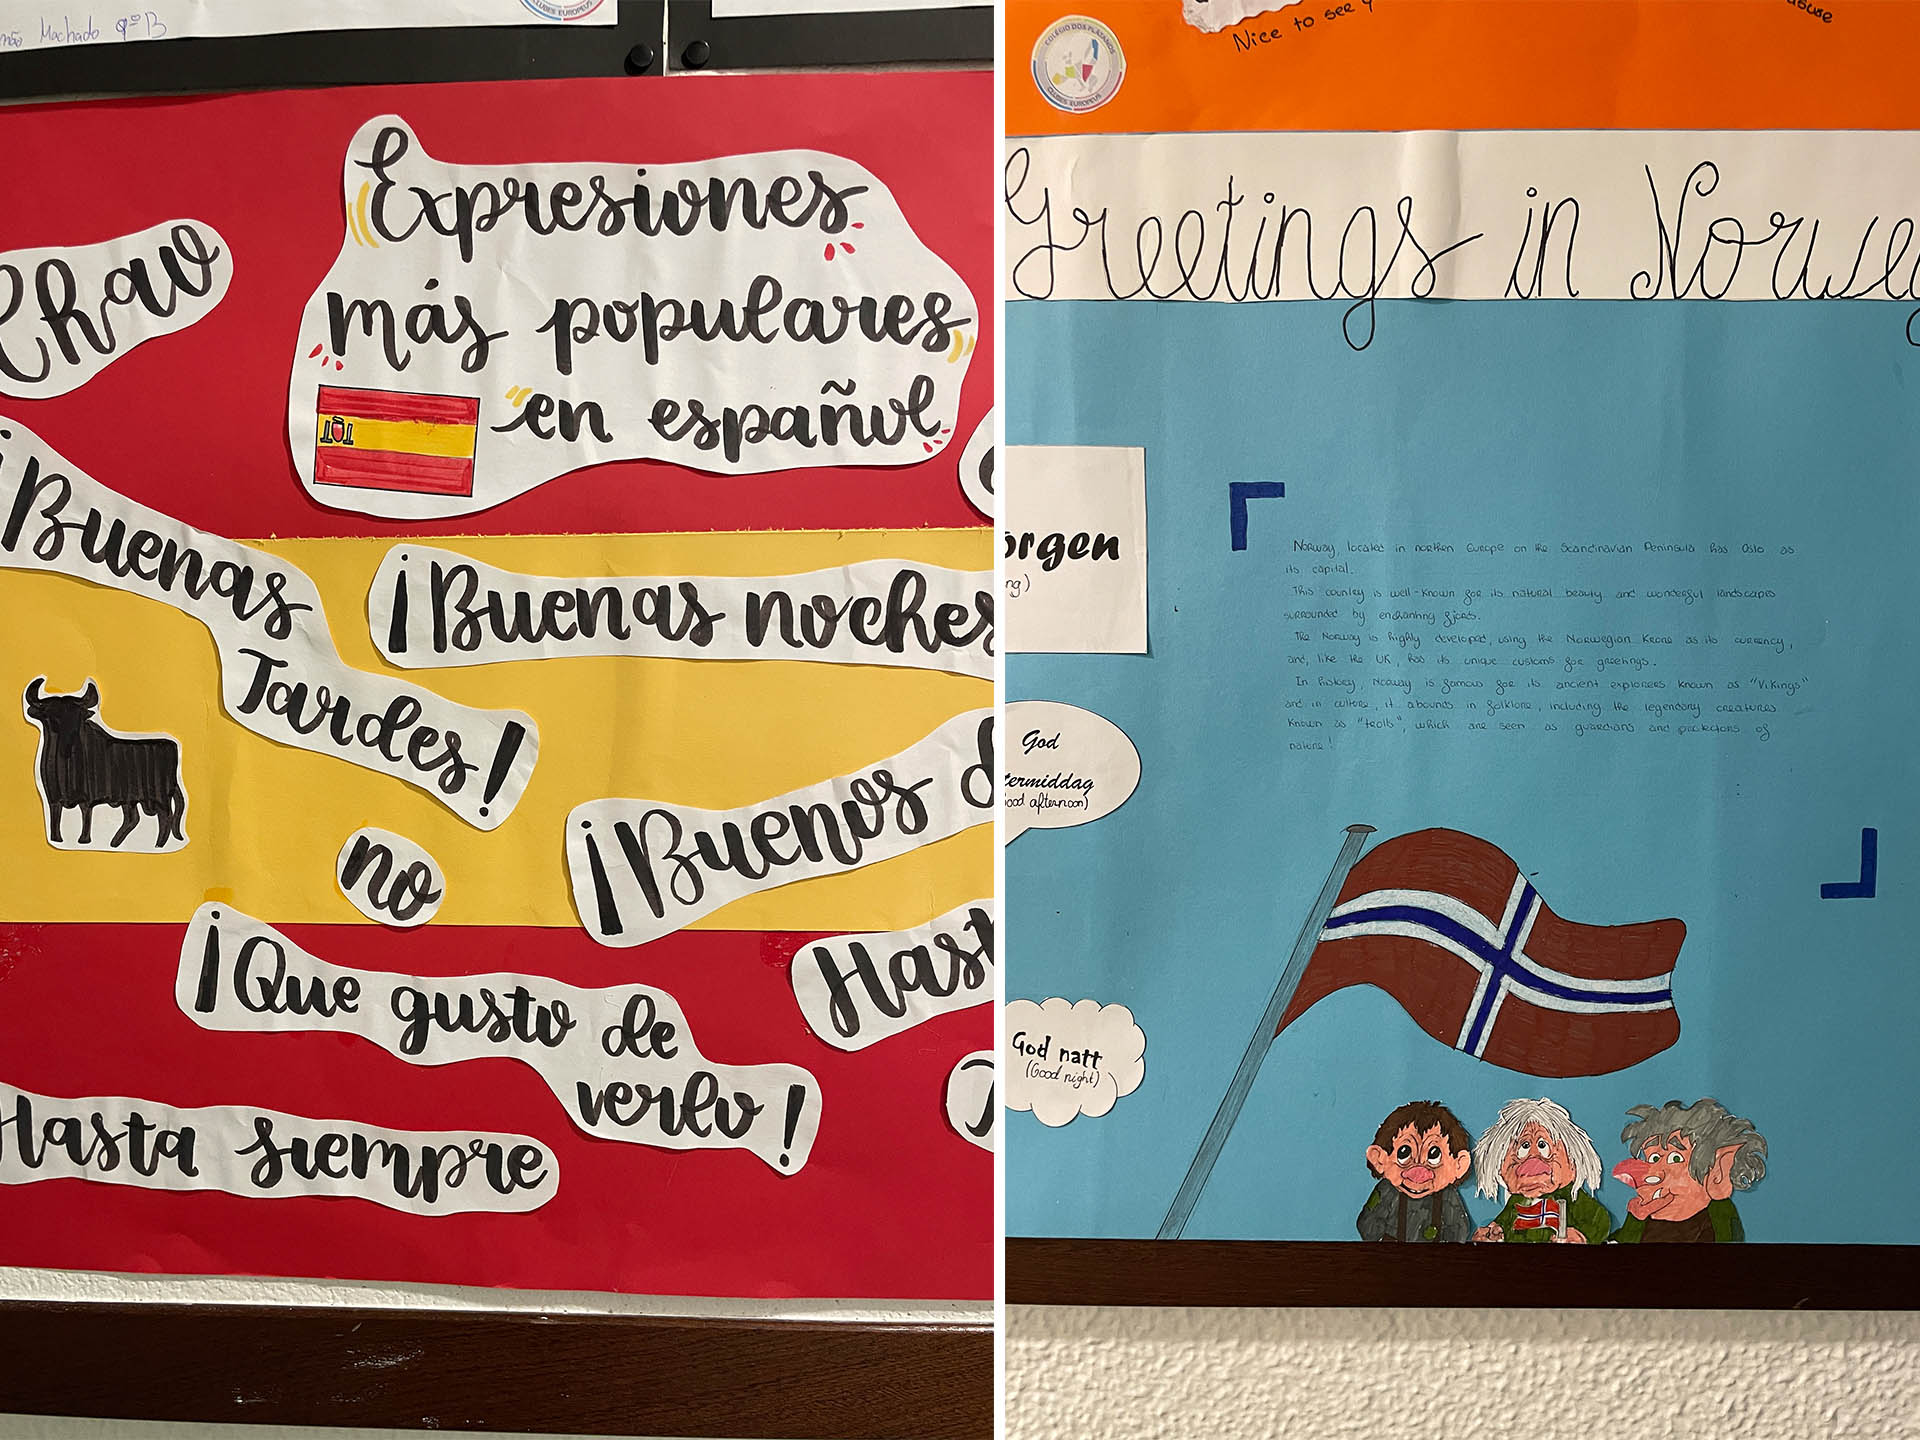 Machado 9º B
Chao
Expresiones
más populares
en español
¡Buenas
Tardes!
¡Buenas noches
no
¡Buenos
¡Que gusto de
verlo!
Hasta siempre
COLÉGIO DOS PLÁTANOS
CLUBES EUROPEUS
Nice to see
Greetings in Norway
God
(Good afternoon)
God natt
(Good night)
Norway, located in northen Europe on the Scandinavian Peninsula has Oslo as
its capital.
This country is well-known for its natural beauty and wonderful landscapes
surrounded by enchanting fjords.
The Norway is highly developed, using the Norwegian Krone as its currency,
and, like the UK, has its unique customs for greetings.
In history, Norway is famous for its ancient explorers known as "Vikings"
and in culture, it abounds in folklore, including the legendary creatures
known as "trolls", which are seen as guardians and protectors of
nature!